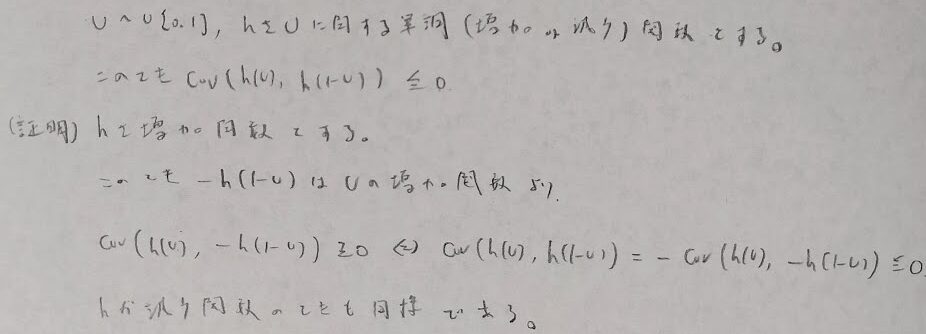 U ~ U[0.1], hをUに関する単調(増加 or 減少)関数とする。
このとき Cov(h(U), h(1-U)) ≦ 0
(証明) hを増加関数とする。
このとき -h(1-U) は Uの増加関数より、
Cov(h(U), -h(1-U)) ≧0 ⇔ Cov(h(U), h(1-U)) = - Cov(h(U), -h(1-U)) ≦0
hが減少関数のときも同様である。